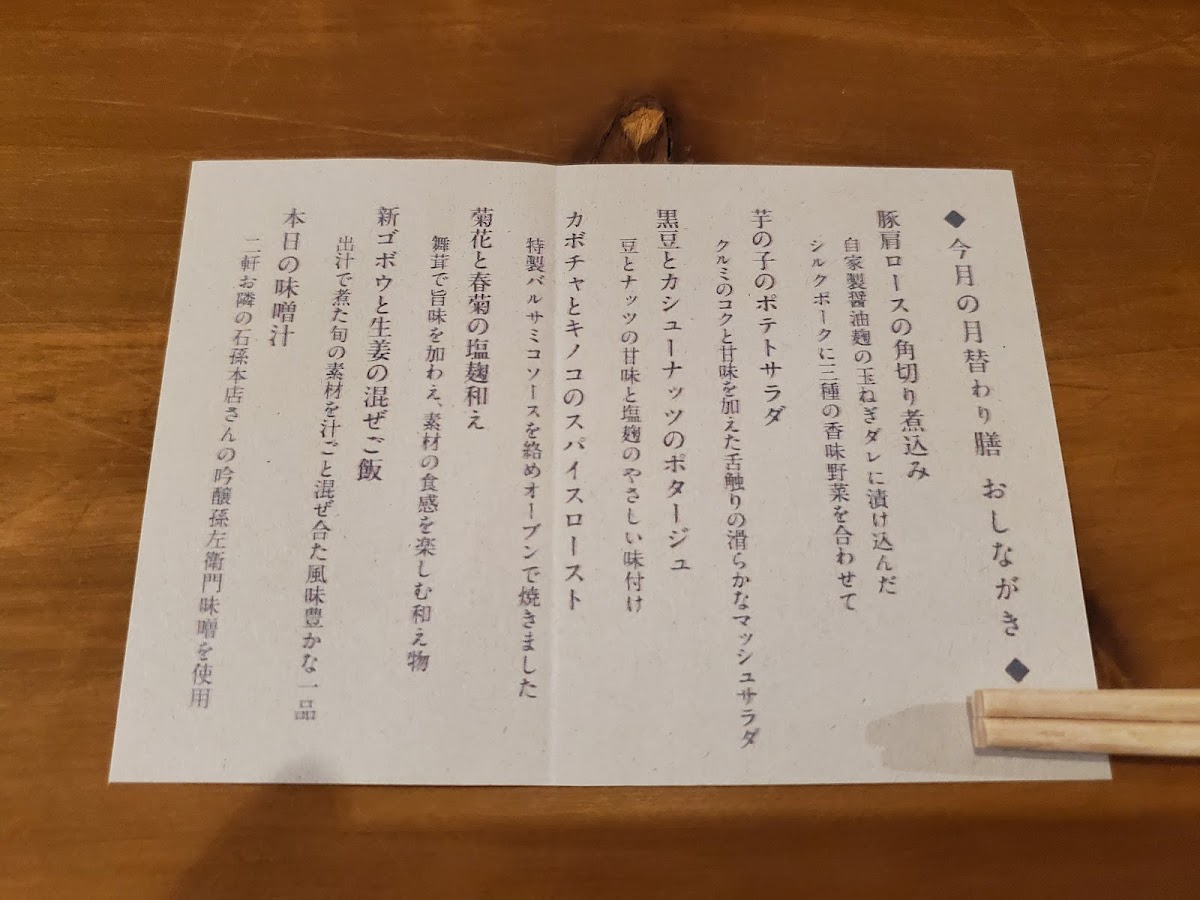 ◆ 今月の月替わり膳 おしながき ◆
豚肩ロースの角切り煮込み
自家製醤油麹の玉ねぎダレに漬け込んだ
シルクポークに三種の香味野菜を合わせて
芋の子のポテトサラダ
クルミのコクと甘味を加えた舌触りの滑らかなマッシュサラダ
黒豆とカシューナッツのポタージュ
豆とナッツの甘味と塩麹のやさしい味付け
カボチャとキノコのスパイスロースト
特製バルサミコソースを絡めオーブンで焼きました
菊花と春菊の塩麹和え
舞茸で旨味を加わえ、素材の食感を楽しむ和え物
新ゴボウと生姜の混ぜご飯
出汁で煮た旬の素材を汁ごと混ぜ合た風味豊かな一品
本日の味噌汁
二軒お隣の石孫本店さんの吟醸孫左衛門味噌を使用